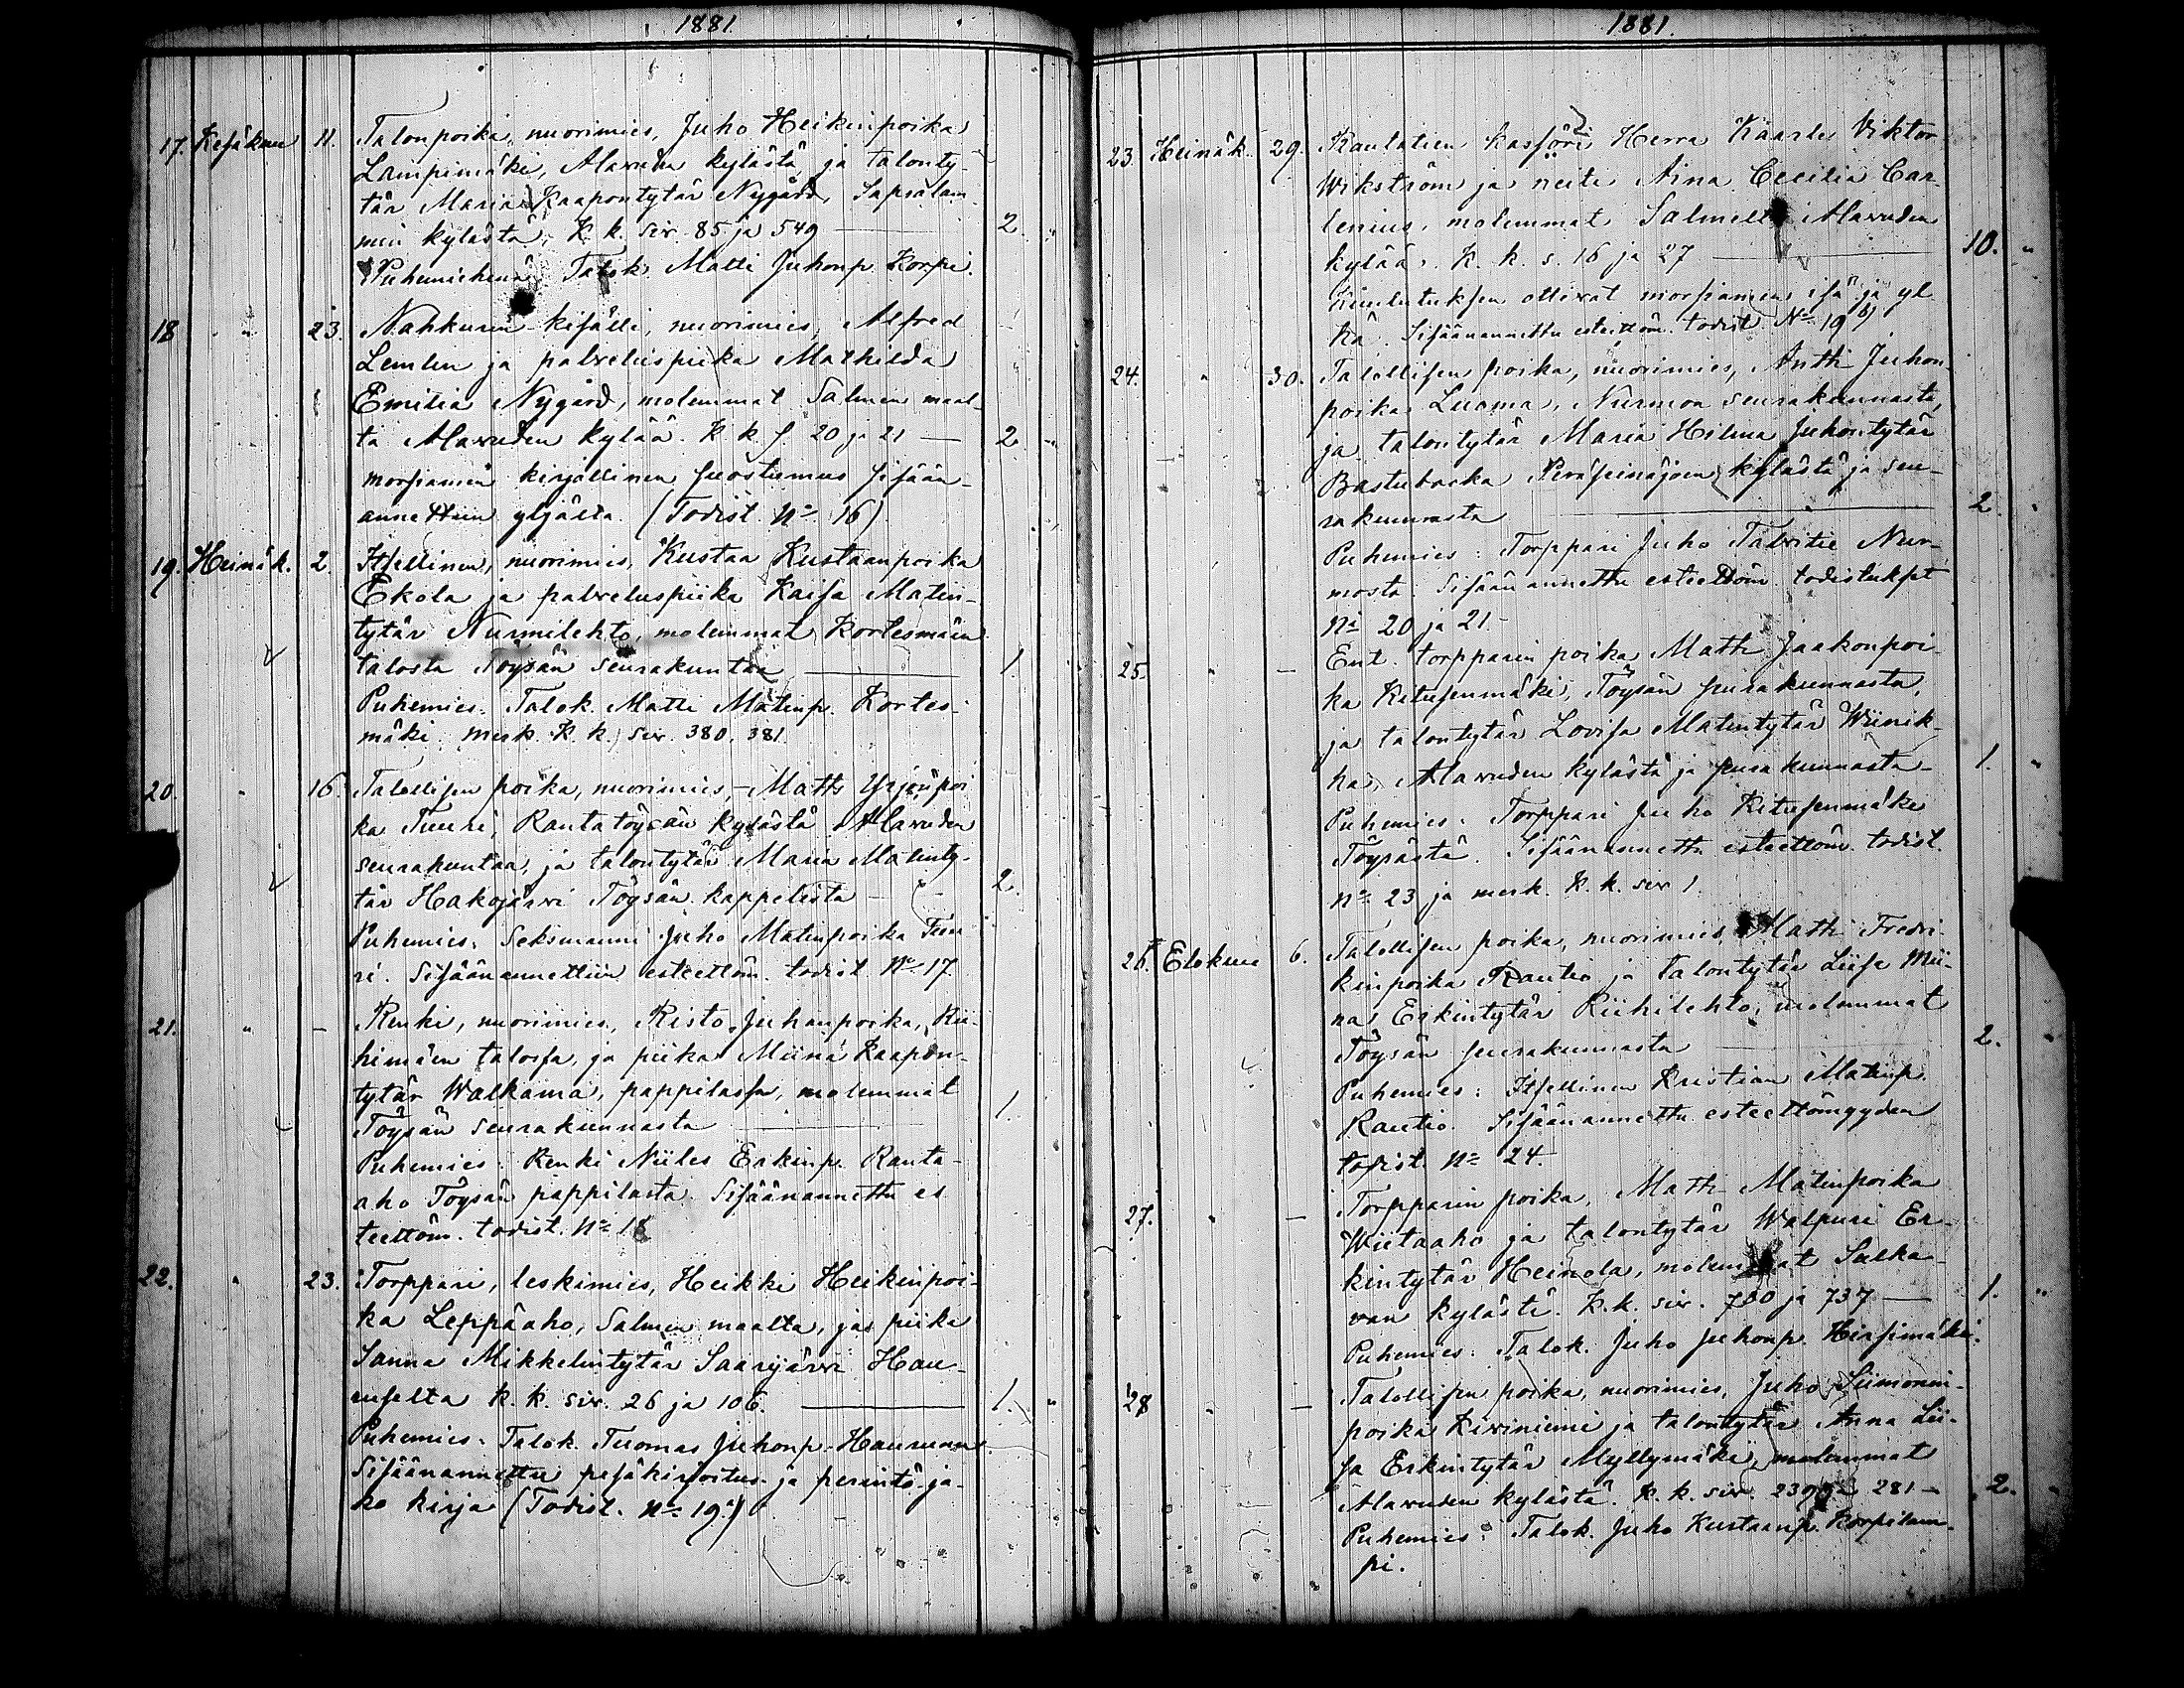 1881.
17. Kesäkuu 11. Talonpoika, nuorimies, Juho Heikinpoika
Lampimäki, Alavuden kylästä ja talonty-
tär Maria Kaapontytär Nygård, Sapsalam-
min kylästä, K. k. siv. 85 ja 549 — 2. "
Puhemiehenä Talok. Matti Juhonp. Korpi.
18 " 23. Nahkurin-kisälli, nuorimies, Alfred
Lemlin ja palveluspiika Mathilda
Emilia Nygård, molemmat Salmen maal-
ta Alavuden kylää. K. k. s. 20 ja 21 — 2. "
morsiamen kirjallinen suostumus sisään-
annettiin yljältä. (Todist. No 16)
19. Heinäk. 2. Itsellinen, nuorimies, Kustaa Kustaanpoika
Ekola ja palveluspiika Kaisa Matin-
tytär Nurmilehto, molemmat Kortesmäen
talosta Töysän seurakuntaa — 1.
Puhemies: Talok. Matti Matinp. Kortes-
mäki. merk. K. k. siv. 380, 381.
20. " 16. Talollisen poika, nuorimies, Matts Yrjönpoi
ka Tuuri, Rantatöysän kylästä Alavuden
seurakuntaa, ja talontytär Maria Matinty-
tär Hakojärvi Töysän kappelista — 2.
Puhemies: Seksmanni Juho Matinpoika Tuu
ri. Sisäänannettiin esteettöm. todist No 17.
21. " — Renki, nuorimies, Risto Juhanpoika, Rii-
himäen talossa, ja piika Miina Kaapon-
tytär Walkama, pappilassa, molemmat
Töysän seurakunnasta — 1.
Puhemies: Renki Niiles Erkinp. Ranta-
aho Töysän pappilasta. Sisäänannettu es
teettöm. todist. No 18
22. " 23. Torppari, leskimies, Heikki Heikinpoi-
ka Leppäaho, Salmen maalta, ja piika
Sanna Mikkelintytär Saarijärvi Hau-
nselta K. k. siv. 26 ja 106. — 1. "
Puhemies: Talok. Tuomas Juhonp. Haunuan
Sisäänannettu pesäkirjoitus- ja perintö-ja-
ko kirja (Todist. No 19a)
1881.
23. Heinäk. 29. Rautatien kassööri Herra Kaarle Viktor
Wikström ja neiti Aina Cecilia Car-
lenius, molemmat Salmelta Alavuden
kylää. K. k. s. 16 ja 27 — 10. "
kuulutuksen ottivat morsiamen isä ja yl-
kä. Sisäänannettu esteettöm. todist No 19 b)
24. " 30. Talollisen poika, nuorimies, Antti Juhon-
poika Luoma, Nurmon seurakunnasta,
ja talontytär Maria Hilma Juhontytär
Bastubacka Peräseinäjoen kylästä ja seu-
rakunnasta — 2. "
Puhemies: Torppari Juho Talvitie Nur-
mosta. Sisäänannettu esteettöm. todistukset
No 20 ja 21.
25. " — Ent. torpparin poika Matti Jaakonpoi-
ka Kitusenmäki, Töysän seurakunnasta,
ja talontytär Lovisa Matintytär Wiinik-
ka, Alavuden kylästä ja seurakunnasta — 1. "
Puhemies: Torppari Juho Kitusenmäki
Töysästä. Sisäänannettu esteettöm. todist.
No 23 ja merk. K. k. siv 1.
26. Elokuu 6. Talollisen poika, nuorimies, Matti Fredri-
kinpoika Rautio ja talontytär Liisa Mii-
na Erkintytär Riihilehto, molemmat
Töysän seurakunnasta — 2. "
Puhemies: Itsellinen Kristian Matinp.
Rautio. Sisäänannettu esteettömyyden
todist. No 24.
27. " — Torpparin poika, Matti Matinpoika
Wiitaaho ja talontytär Walpuri Er-
kintytär Heinola, molemmat Sulka-
van kylästä. K. k. siv. 700 ja 737 — 1. "
Puhemies: Talok. Juho Juhonp. Hirsimäki.
28 " — Talollisen poika, nuorimies, Juho Siimonin-
poika Kiviniemi ja talontytär Anna Lii-
sa Erkintytär Myllymäki, molemmat
Alavuden kylästä. K. k. siv. 239 ja 281 — 2. "
Puhemies: Talok. Juho Kustaanp. Korpilam-
pi.